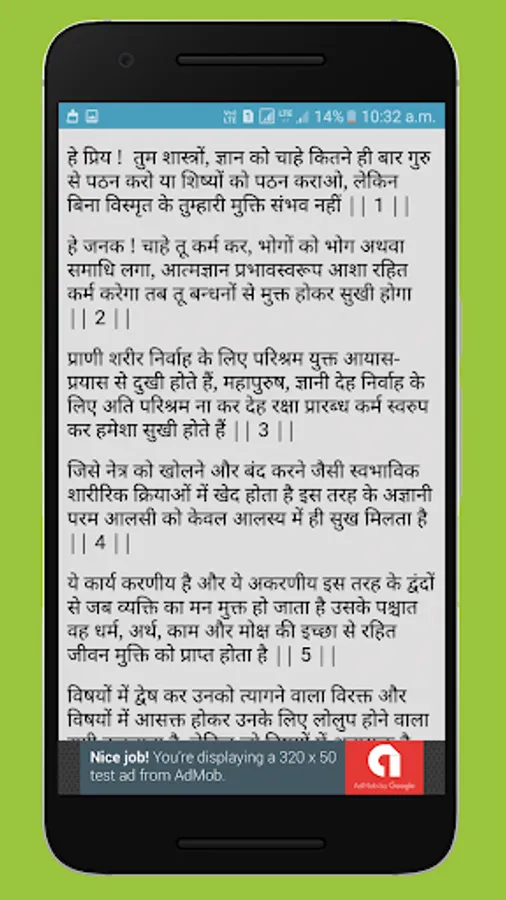 14% 10:32 a.m.
हे प्रिय ! तुम शास्त्रों, ज्ञान को चाहे कितने ही बार गुरु
से पठन करो या शिष्यों को पठन कराओ, लेकिन
बिना विस्मृत के तुम्हारी मुक्ति संभव नहीं || 1 ||
हे जनक ! चाहे तू कर्म कर, भोगों को भोग अथवा
समाधि लगा, आत्मज्ञान प्रभावस्वरूप आशा रहित
कर्म करेगा तब तू बन्धनों से मुक्त होकर सुखी होगा
|| 2 ||
प्राणी शरीर निर्वाह के लिए परिश्रम युक्त आयास-
प्रयास से दुखी होते हैं, महापुरुष, ज्ञानी देह निर्वाह के
लिए अति परिश्रम ना कर देह रक्षा प्रारब्ध कर्म स्वरुप
कर हमेशा सुखी होते हैं || 3 ||
जिसे नेत्र को खोलने और बंद करने जैसी स्वभाविक
शारीरिक क्रियाओं में खेद होता है इस तरह के अज्ञानी
परम आलसी को केवल आलस्य में ही सुख मिलता है
|| 4 ||
ये कार्य करणीय है और ये अकरणीय इस तरह के द्वंदों
से जब व्यक्ति का मन मुक्त हो जाता है उसके पश्चात
वह धर्म, अर्थ, काम और मोक्ष की इच्छा से रहित
जीवन मुक्ति को प्राप्त होता है || 5 ||
विषयों में द्वेष कर उनको त्यागने वाला विरक्त और
विषयों में आसक्त होकर उनके लिए लोलुप होने वाला
Nice job! You're displaying a 320 x 50
test ad from AdMob.
AdMob by Google